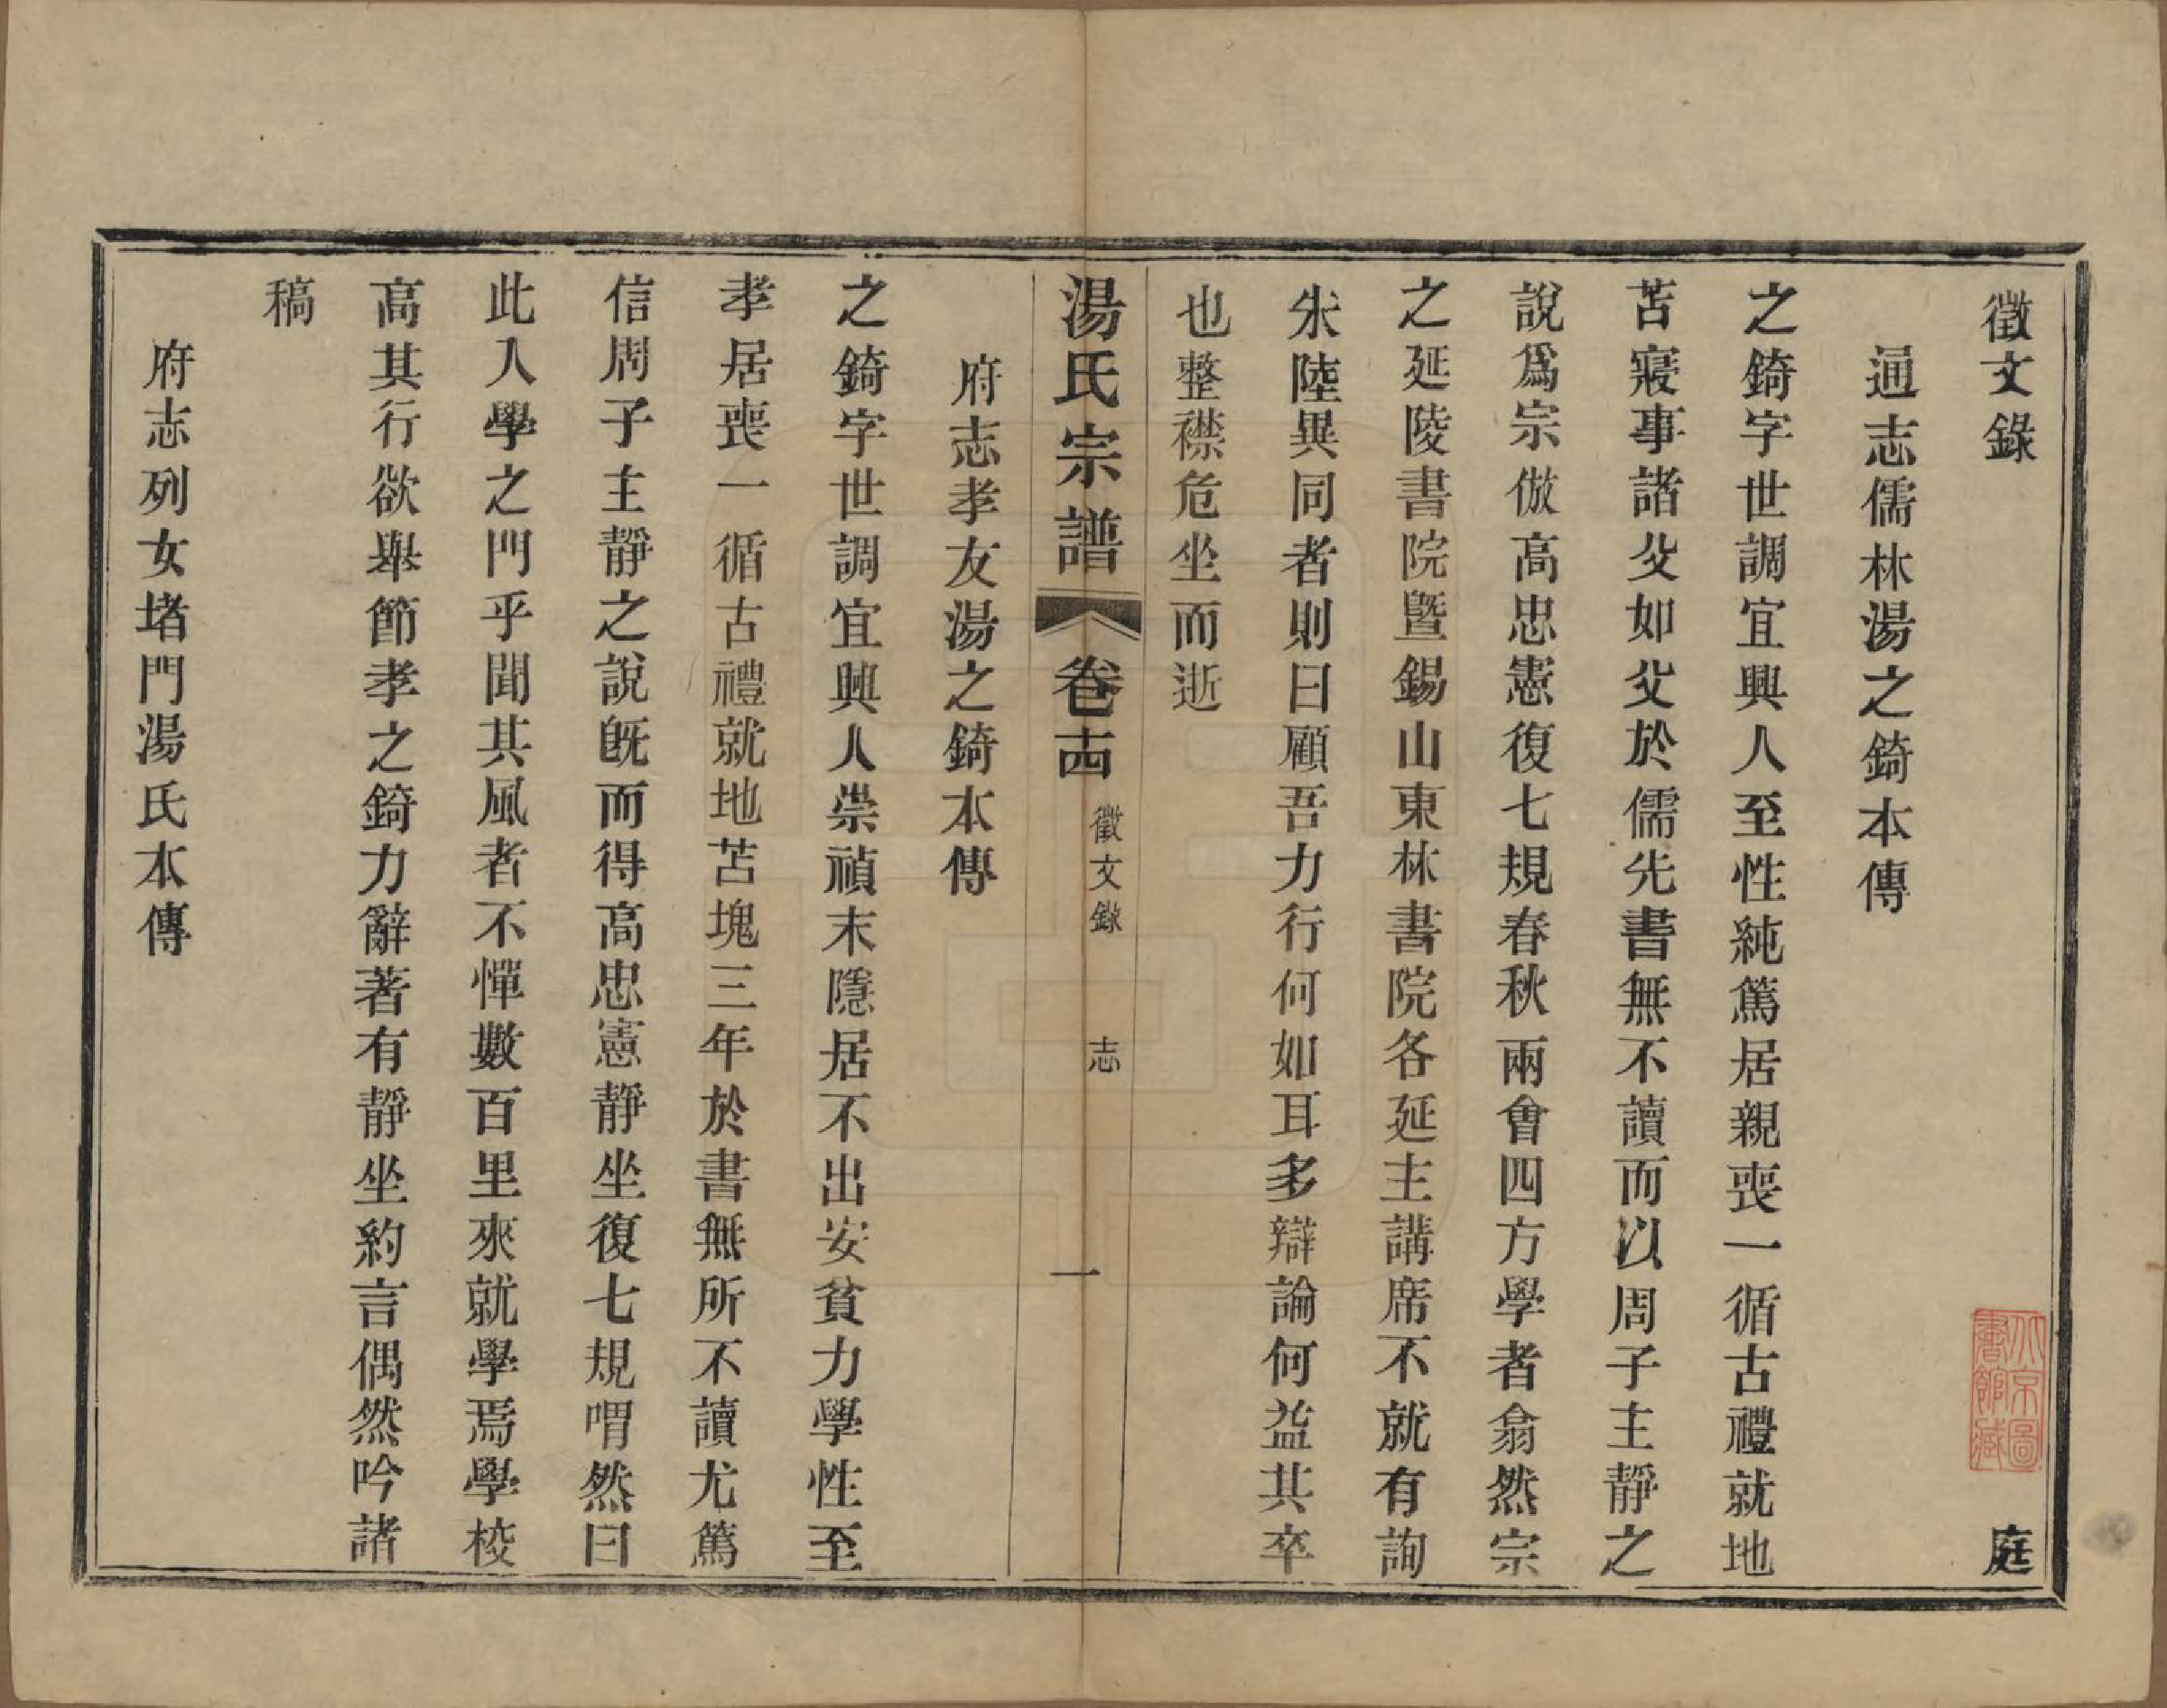 徵文錄　庭
通志儒林湯之錡本傳
之錡字世調宜興人至性純篤居親喪一循古禮就地
苫寢事諸父如父於儒先書無不讀而以周子主靜之
說爲宗倣高忠憲復七規春秋兩會四方學者翕然宗
之延陵書院曁錫山東林書院各延主講席不就有詢
朱陸異同者則曰顧吾力行何如耳多辯論何益其卒
也整襟危坐而逝
湯氏宗譜　卷十四　徵文錄　志　一
府志孝友湯之錡本傳
之錡字世調宜興人崇禎末隱居不出安貧力學性至
孝居喪一循古禮就地苫塊三年於書無所不讀尤篤
信周子主靜之說旣而得高忠憲靜坐復七規喟然曰
此入學之門乎聞其風者不憚數百里來就學焉學校
高其行欲舉節孝之錡力辭著有靜坐約言偶然吟諸
稿
府志列女堵門湯氏本傳
北京圖
書館藏